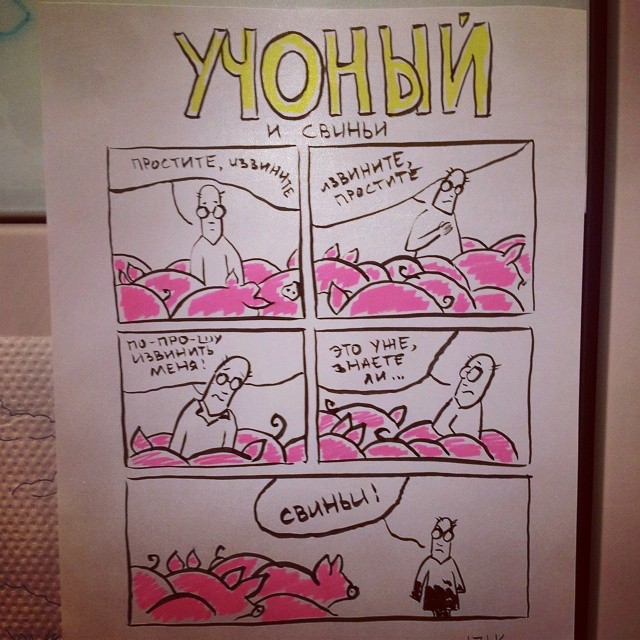 УЧОНЫЙ
И СВИНЬИ
ПРОСТИТЕ, ИЗВИНИТЕ
ИЗВИНИТЕ,
ПРОСТИТЕ
ПО-ПРО-ШУ
ИЗВИНИТЬ
МЕНЯ!
ЭТО УЖЕ,
ЗНАЕТЕ
ЛИ...
СВИНЬИ!